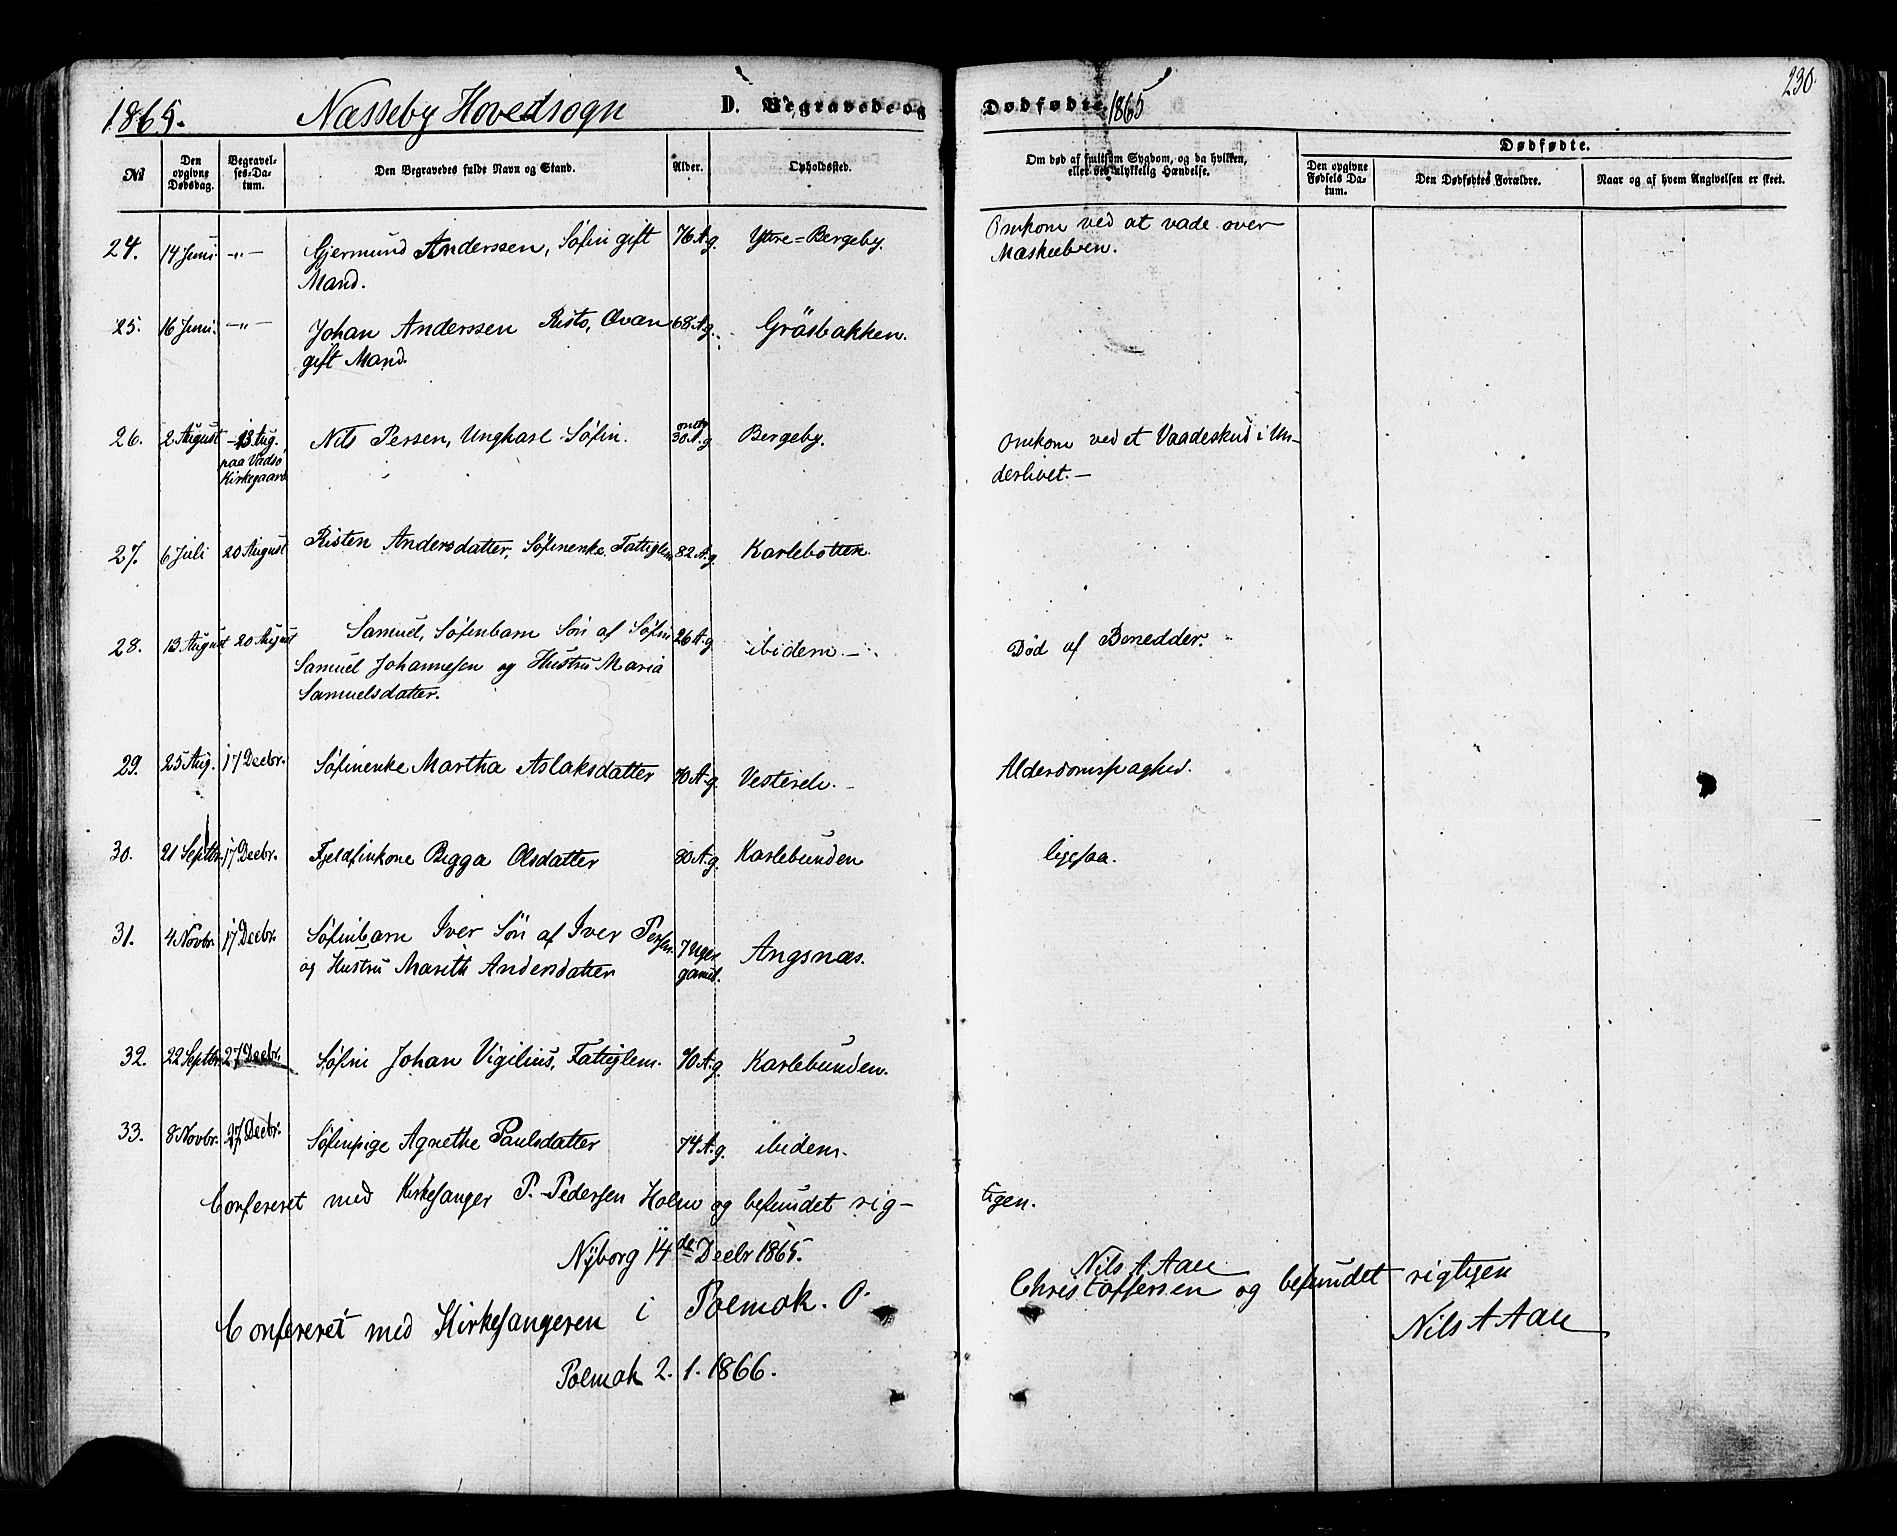 1865. Næsseby Hovedsogn D. Begravede og Dødfødte 1865 230
No
Den opgivne Dødsdag.
Begravelses-Datum.
Den Begravedes fulde Navn og Stand.
Alder.
Opholdssted.
Om død af smitsom Sygdom, og da hvilken,
eller ved ulykkelig Hændelse.
Dødfødte.
Den opgivne Fødsels Datum.
Den Dødfødtes Forældre.
Naar og af hvem Angivelsen er skeet.
24. 14 Juni. -"- Gjermund Anderssen, Søfin gift 76 A. g. Yttre=Bergeby. Omkom ved at vade over
Mand. Maskielven.
25. 16 Juni. -"- Johan Anderssen Risto, Qvan 68 A. g. Gräsbakken.
gift Mand.
26. 2 August - 13 Aug. Nils Persen, Ungkarl Søfin. omtr 30 A. g Bergeby. Omkom ved et Vaadeskud i Un-
paa Vadsø derlivet. -
Kirkegaard
27. 6 Juli 20 August Risten Andersdatter, Søfinenke, Fattiglem 82 A. g. Karlebotten.
28. 13 August 20 August Samuel, Søfinbarn Søn af Søfin 26 A. g ibidem. - Død af Benedder.
Samuel Johannesen og Hustru Maria
Samuelsdatter.
29. 25 Aug. 17 Decbr. Søfinenke Martha Aslaksdatter 70 A. g. Vesterelv. - Alderdomssvaghed.
30. 21 Septbr. 17 Decbr. Fjeldfinkone Bigga Olsdatter 80 A. g. Karlebunden ligesaa.
31. 4 Novbr. 17 Decbr. Søfinbarn Iver Søn af Iver Persen 7 Uger Angsnæs.
og Hustru Marith Andersdatter gamel.
32. 22 Septbr. 27 Decbr. Søfin Johan Vigilius, Fattiglem. 70 A. g. Karlebunden.
33. 8 Novbr. 27 Decbr. Søfinpige Agnethe Paulsdatter 74 A. g. ibidem.
Confereret med Kirkesanger P. Pedersen Holm og befundet rig-tigen.
Nyborg 14de Decbr 1865.
Nils A Aall
Confereret med Kirkesangeren i Polmak. O. Christoffersen og befundet rigtigen
Polmak 2. 1. 1866.
Nils A Aall